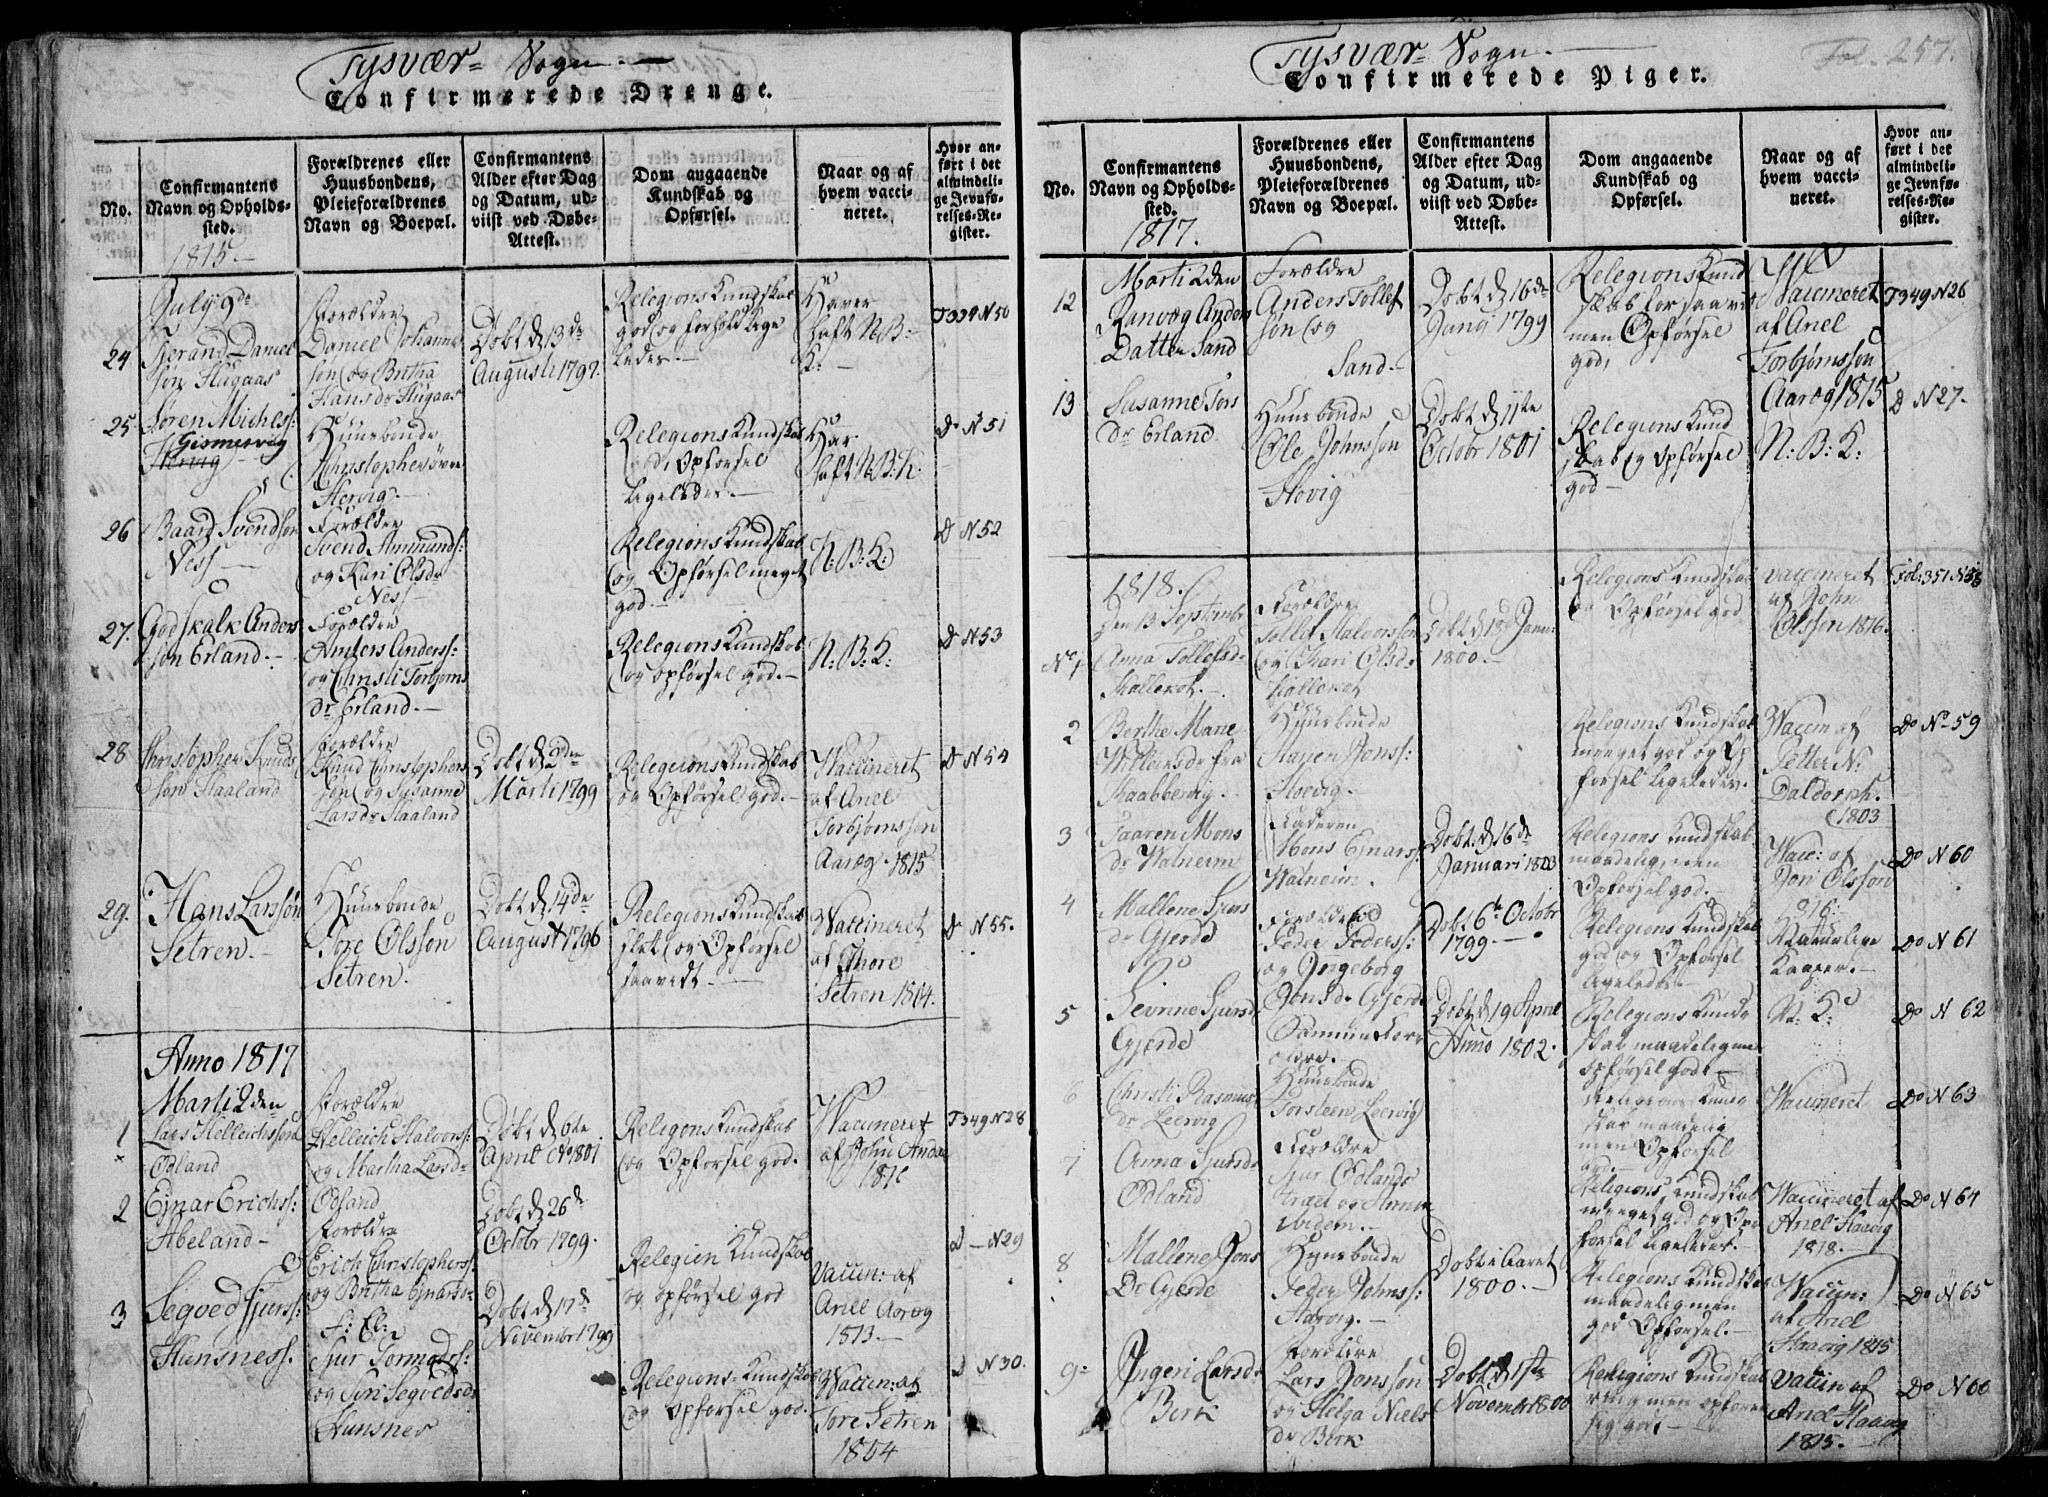 Tysvær Sogn.
Confirmerede Drenge.
No.
Confirmantens
Navn og Opholds-
sted.
1815.
Forældrenes eller
Huusbondens,
Pleieforældrenes
Navn og Boepæl.
Confirmantens
Alder efter Dag
og Datum, ud-
viist ved Døbe-
Attest.
Dom angaaende
Kundskab og
Opførsel.
Naar og af
hvem vacci-
neret.
Hvor an-
ført i det
almindeli-
ge Jevnfø-
relses-Re-
gister.
July 9de
24
Daniel
søn
Forældre
Daniel
søn og Britha
Hansdr
Døbt d 13de
Augusti 1797.
Relegions Kundskab
god og forhold lige
ledes.
Haver
haft N B:
K:
F 339 N 50
25
Søren
Gismervig
Huusbonde
Christopher øvre
Hervig.
Relegions Kundskab
god, Opførsel
ligeledes.
Har
haft N. B. K.
Do N 51
26
Baard Svendsøn
Ness
Forældre
Svend Amunds:
og Kari Olsdr
Ness
Relegions Kundskab
og Opførsel meget
god
N: B: K:
Do N 52
27.
Godskalk Anders
søn Erland.
Forældre
Anders Anders:
og Christi Torbjørns
dr Erland.
Relegions Kundskab
og opførsel god.
N: B: K:
Do N 53
28
Christopher Knuds
søn Haaland
Forældre
Knud Christophers
søn og Susanne
Larsdr Haaland
Døbt d 2den
Marti 1799
Relegions Kundskab
og Opførsel god.
Vaccineret
af Anel
Torbjørnssøn
Aarøg. 1815
Do N 54
29.
Hans Larssøn
Setren.
Huusbonde
Tore Olssøn
Setren.
Døbt d 14de
August 1796
Relegions Kundskab
slet og Opførsel
saavidt.
Vaccineret
af Thore
Setren 1804.
Do N 55.
Anno 1817
Marti 2den
1
Lars Hellichssøn
Odland
Forældre
Hellich Halvors:
og Martha Larsdr
Odland
Døbt d 6te
April Ao 1801
Relegions Kundskab
og Opførsel god.
Vaccineret
af John
F 349 N 28
2
Ejnar Erichs:
Abeland
Forældre
Erich Christophers:
og Britha Ejnarsdr
Døbt d 26de
Octobr 1799.
Relegion Kundskab
og opførsel god
Vaccin: af
Anel Aarøg
1813.
D N 29
3
Segved Sjurs:
Hunsness.
Sjur
og Siri Segvedsdr
Hunsnes
Døbt d 17de
Novembr 1799
Relegions Kundskab
og opførsel god.
Vaccin: af
Tore Setren
1804
D N 30.
Tysvær Sogn.
Confirmerede Piger.
Fol. 257.
No.
Confirmantens
Navn og Opholds-
sted.
1817.
Forældrenes eller
Huusbondens,
Pleieforældrenes
Navn og Boepæl.
Confirmantens
Alder efter Dag
og Datum, ud-
viist ved Døbe-
Attest.
Dom angaaende
Kundskab og
Opførsel.
Naar og af
hvem vacci-
neret.
Hvor an-
ført i det
almindeli-
ge Jevnfø-
relses-Re-
gister.
12
Marti 2den
Ranvæg Anders
Datter Sand
Forældre
Anders Tollef
søn og
Sand.
Døbt d 16de
Junij 1799
Relegions Kund
skab
men Opførsel
god,
Vaccineret
af Anel
Torbjørnssøn
Aarøg 1815
F 349 N 26
13
Susanne Tors
dr Erland
Huusbonde
Ole Johnssøn
Hovig
Døbt d 11te
Octobr 1801
Relegions Kund
skab og opførsel
god
N: B: K:
D N 27.
1818.
Den 13 Septembr
No 1
Anna Tollefsdr
Forældre
Tollef Halvorssøn
og Kari Olsdr
Døbt d 18 Janu:
1800.
Relegions Kundskab
og Opførsel god
Vaccineret
af John
Olssøn 1816.
Fol: 351 N 58
2
Berthe Marie
Huusbonde
Hovig.
Relegions Kundskab
meeget god og Op
førsel ligeledes.
Vaccin af
Petter N:
Daldorph.
1803
Do No 59
3
Maaren Mons
dr Watneim
Faderen
Mons Ejnars:
Watneim.
Døbt. d 16de
Januari 1803
Relegions Kundskab
maadelig, men
Opførsel god.
Vacc: af
Jon Olssøn
816.
Do N 60
4
Mallene Sjurs
dr Gjerde
Forældre
Peder Peders:
og Ingeborg
Jonsdr Gjerde
Døbt 6te Octobr
1799.
Relegions Kundskab
god og Opførsel
ligeledes.
Naturlige
Kaaper.
Do N 61
5
Sevrine Sjursdr
Gjerde
Samme Foræ
ldre.
Døbt d 19 April
Anno 1802.
Relegions Kund
skab maadelig men
opførsel godt
N: K:
Do N 62
6
Christi Rasmus
dr Leervig
Huusbonde
Torsteen Leervig
Relegions Kund
skab maadelig
men Opførsel
god.
Vaccineret
Do N 63
7
Anna Sjursdr
Odland
Forældre
Sjur Odlands
træet og Anna
ibidem.
Religions Kundskab
meeget god og Op
førsel ligeleedes.
Vaccineret af
Anel Haavig
1818.
Do N 64
8
Mallene Jons
Dr Gjerde
Huusbonde
Peder Johns:
Haavig.
Døbt i Aaret
1800.
Relegions Kundskab
maadelig men
god Opførsel.
Vaccin:
af Anel
Haavig 1815
Do N 65
9
Ingeri Larsdr
Birk
Forældre
Lars Jonssøn
og Helga Niels
dr Birk
Døbt d 1ste
Novembr 1800
Relegions Kundskab
ring men opfører
sig got
Vaccin af
Anel Haavig
1815.
Do N 66